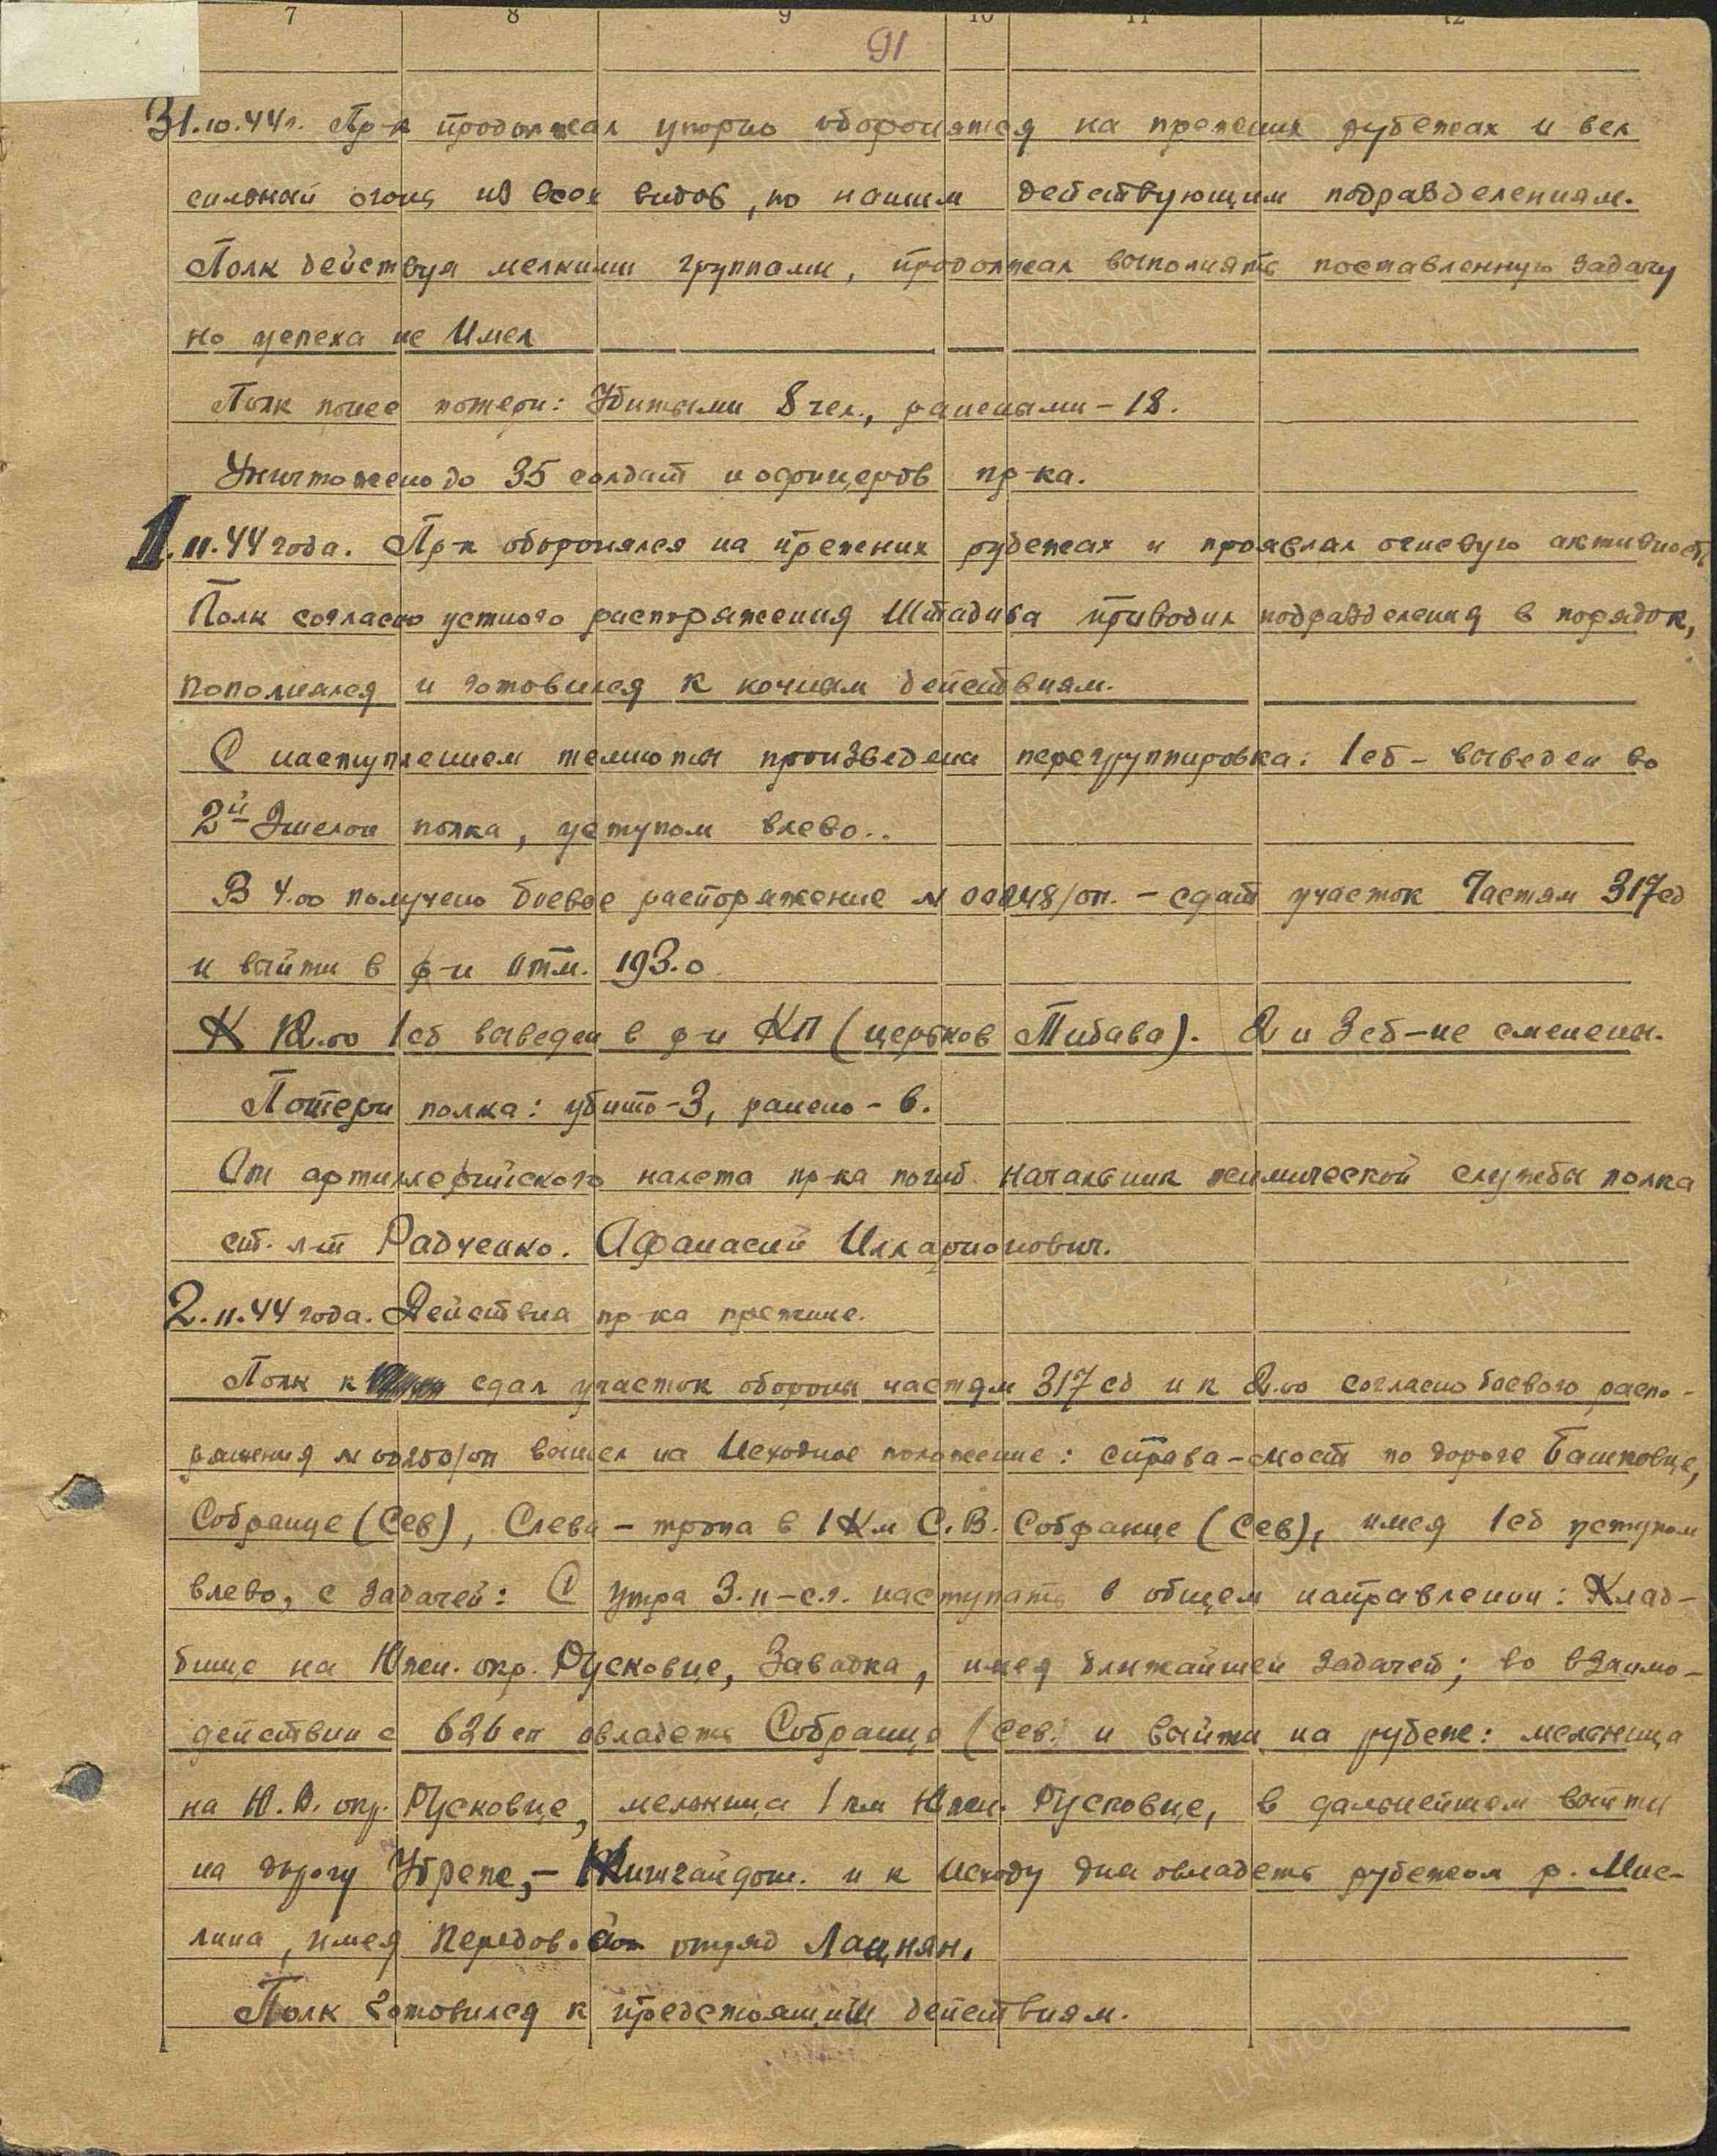 7 8 9 10 11 12
91
31.10.44г. Пр-к продолжал упорно оборонятся на прежних рубежах и вел
сильный огонь из всех видов, по нашим действующим подразделениям.
Полк действуя мелкими группами, продолжал выполнять поставленную задачу
но успеха не Имел
Полк понес потери: Убитыми 8 чел., ранеными - 18.
Уничтожено до 35 солдат и офицеров пр-ка.
1.11.44 года. Пр-к оборонялся на прежних рубежах и проявлял огневую активность
Полк согласно устного распоряжения Штадива приводил подразделения в порядок,
пополнялся и готовился к ночным действиям.
С наступлением темноты произведена перегруппировка: 1 сб - выведен во
2й Эшелон полка, уступом влево..
В 4.00 получено боевое распоряжение № 00248/оп. - сдать участок Частям 317 сд
и выйти в р-н Отм. 193.0
К 12.00 1 сб выведен в р-н КП (церьков Тибава). 2 и 3 сб - не сменены.
Потери полка: убито - 3, ранено - 6.
От артиллерийского налета пр-ка погиб начальник химической службы полка
ст. л-т Радченко. Афанасий Илларионович.
2.11.44 года. Действия пр-ка прежние.
Полк к сдал участок обороны частям 317 сд и к 2.00 согласно боевого распо-
ряжения № 00250/оп вышел на Исходное положение: справа - мост по дороге Башковце,
Собранце (Сев), Слева - тропа в 1 Км С.В. Собранце (Сев), имея 1 сб уступом
влево, с Задачей: С утра 3.11 - с.г. наступать в общем направлении: Клад-
бище на Южн. окр. Русковце, Завадка, имея ближайшей Задачей; во взаимо-
действии с 626 сп овладеть Собранце (Сев.) и выйти на рубеж: мельница
на Ю.В. окр. Русковце, мельница 1 км Южн. Русковце, в дальнейшем выйти
на дорогу Убреже, - и к Исходу дня овладеть рубежом р. Мис-
лина, имея Передовой отряд Лацнян.
Полк Готовился к предстоящим действиям.